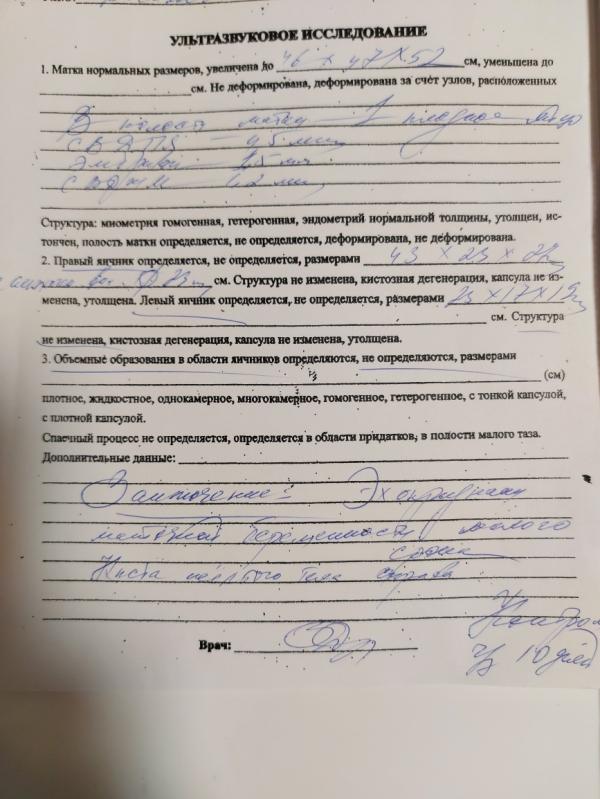 УЛЬТРАЗВУКОВОЕ ИССЛЕДОВАНИЕ
1. Матка нормальных размеров, увеличена до 46 х 47 х 52 см, уменьшена до
см. Не деформирована, деформирована за счёт узлов, расположенных
В полости матки 1 плодное яйцо
СВД 4,5 мм
Эмбрион 1,5 мм
1,2 мм
Структура: миометрия гомогенная, гетерогенная, эндометрий нормальной толщины, утолщен, ис-
тончен, полость матки определяется, не определяется, деформирована, не деформирована.
2. Правый яичник определяется, не определяется, размерами 43 х 23 х
23 см. Структура не изменена, кистозная дегенерация, капсула не из-
менена, утолщена. Левый яичник определяется, не определяется, размерами 23 х 17 х 19
см. Структура
не изменена, кистозная дегенерация, капсула не изменена, утолщена.
3. Объемные образования в области яичников определяются, не определяются, размерами
(см)
плотное, жидкостное, однокамерное, многокамерное, гомогенное, гетерогенное, с тонкой капсулой,
с плотной капсулой.
Спаечный процесс не определяется, определяется в области придатков, в полости малого таза.
Дополнительные данные:
Заключение: Эхопризнаки
маточной беременности малого
срока
Киста жёлтого тела справа
Контроль
Врач:
ч/з 10 дней